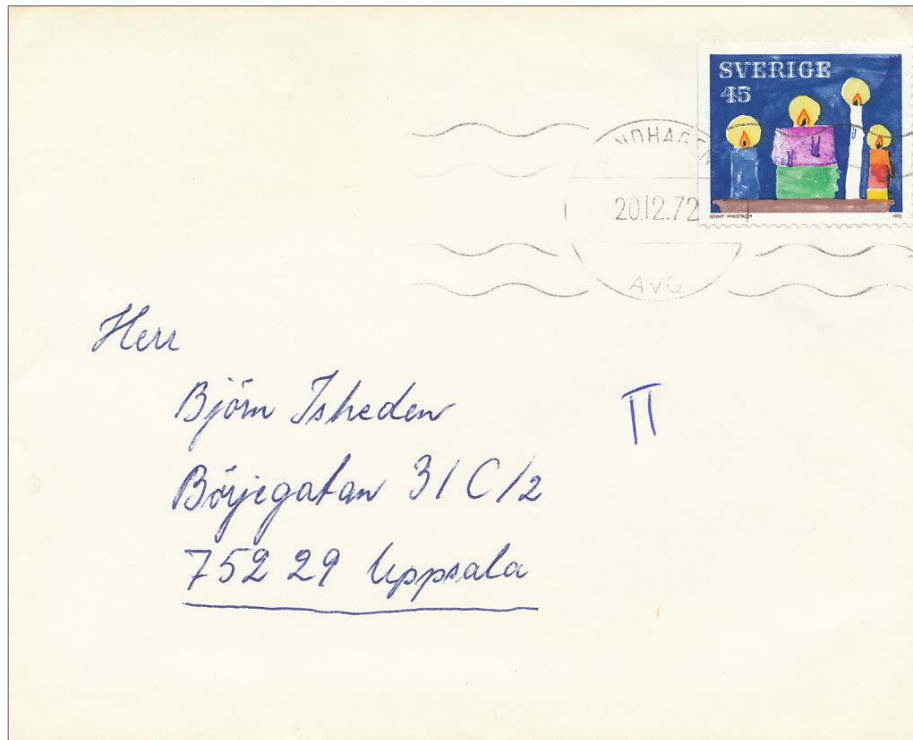 SVERIGE
45
JENNY WIKSTRÖM 1972
NDHAGEN
20.12.72
AVG
Herr
Björn Isheden
II
Börjegatan 31 C/2
752 29 Uppsala